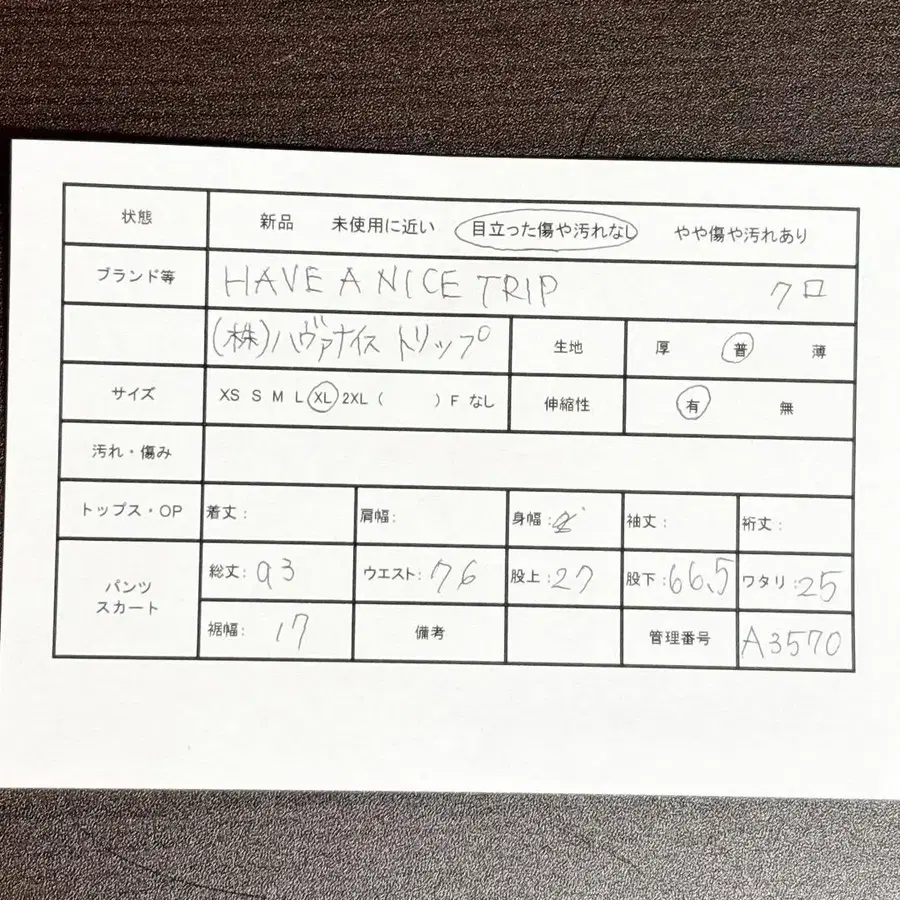 状態 新品 未使用に近い 目立った傷や汚れなし やや傷や汚れあり
ブランド等 HAVE A NICE TRIP クロ
(株)ハヴァナイス トリップ 生地 厚 普 薄
サイズ XS S M L XL 2XL ( ) F なし 伸縮性 有 無
汚れ・傷み
トップス・OP 着丈: 肩幅: 身幅: 袖丈: 裄丈:
パンツ スカート 総丈:93 ウエスト:76 股上:27 股下:66.5 ワタリ:25
裾幅:17 備考 管理番号 A3570